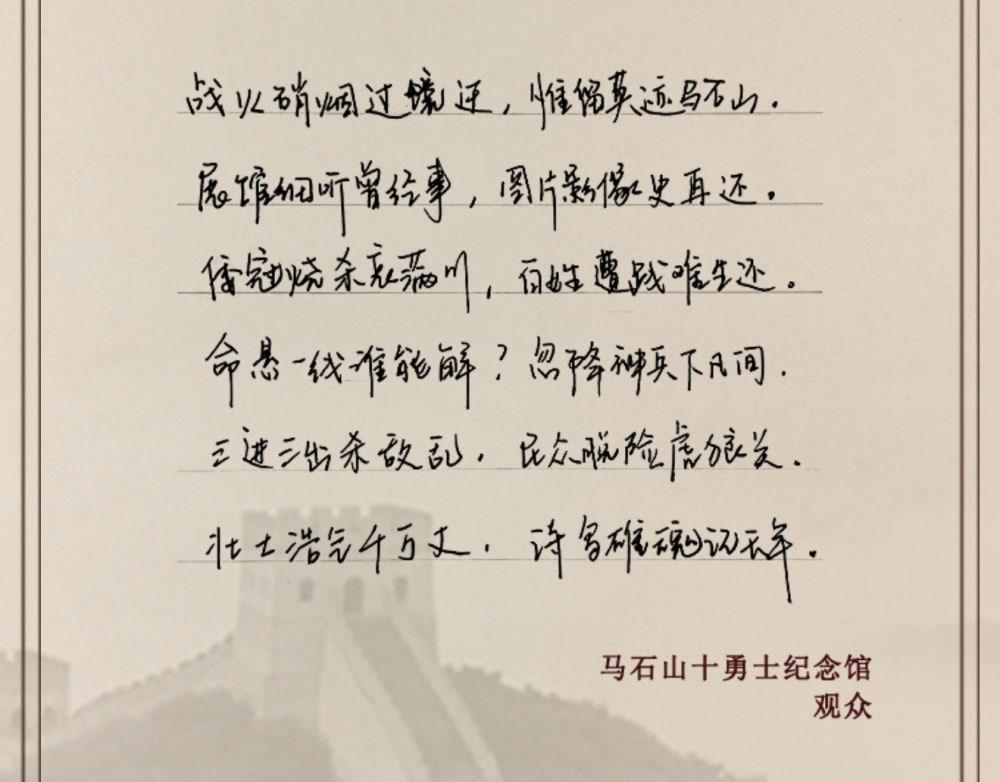 战火硝烟过境迁，惟留英迹马石山。
展馆细听曾经事，图片影像史再还。
倭寇烧杀哀满川，百姓遭践难生还。
命悬一线谁能解？忽降神兵下凡间.
三进三出杀敌乱. 民众脱险虎狼关.
壮士浩气千万丈. 诗写雄魂记天年.
马石山十勇士纪念馆
观众